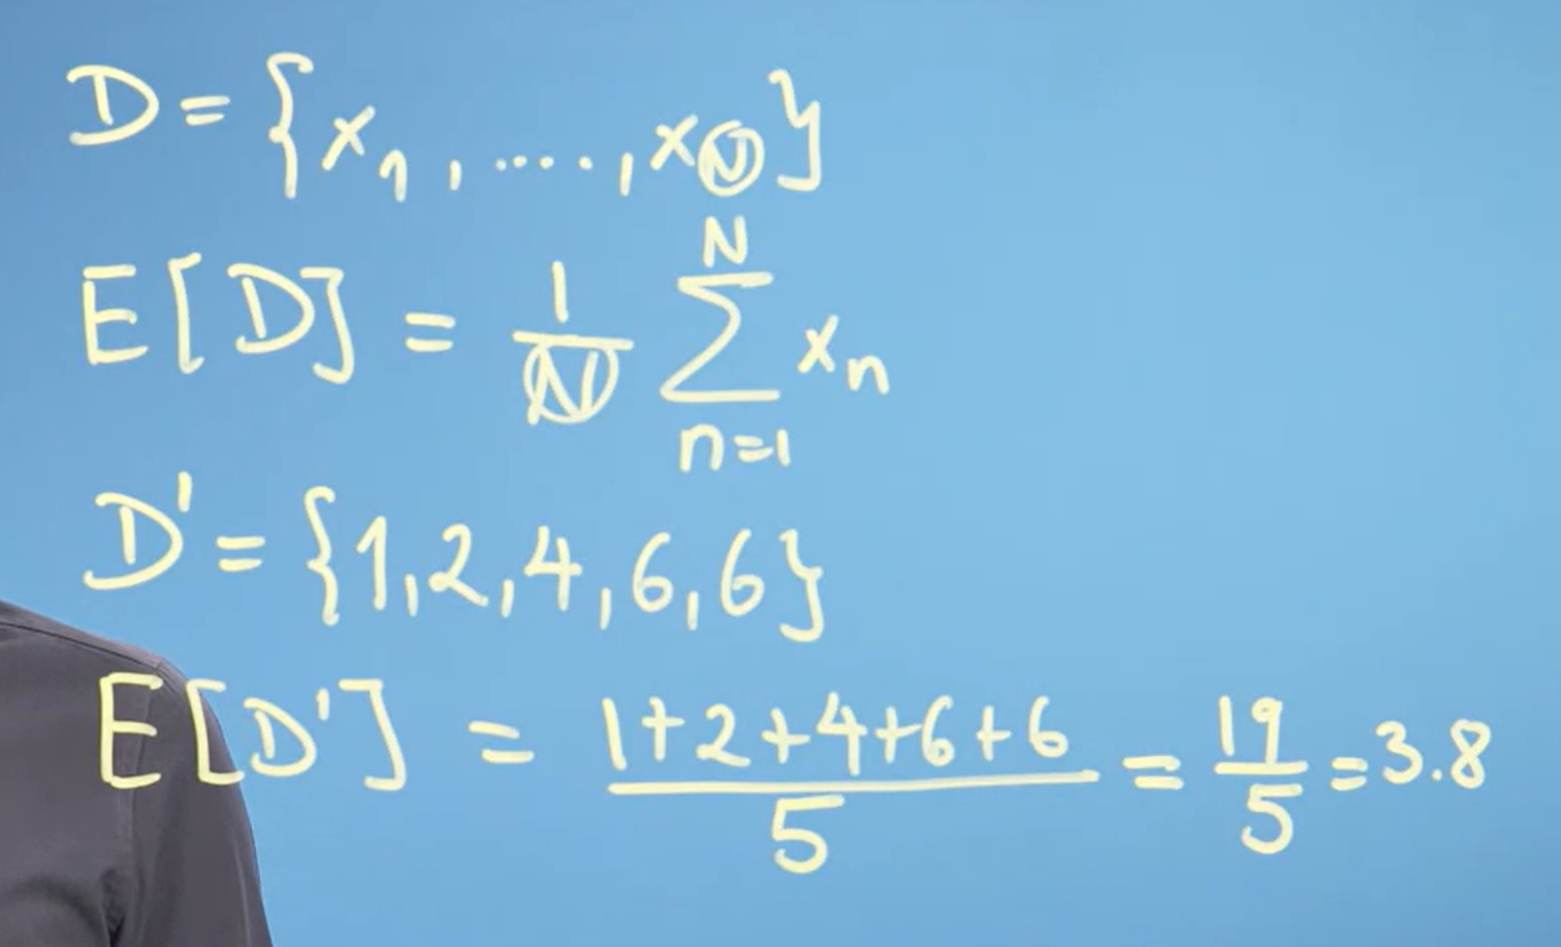 D = {x₁, ...., x_N}
E[D] = 1/N ∑_{n=1}^{N} xₙ
D' = {1,2,4,6,6}
E[D'] = (1+2+4+6+6)/5 = 19/5 = 3.8